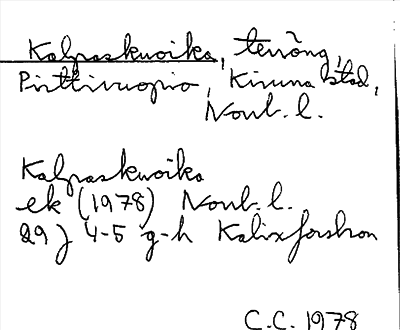 Kalpaskuoika, terräng,
Pirttivuopio, Kiruna stad,
Norrb. l.
Kalpaskuoika
ek (1978) Norrb. l.
29J 4-5 g-h Kalixforsbron
C.C. 1978